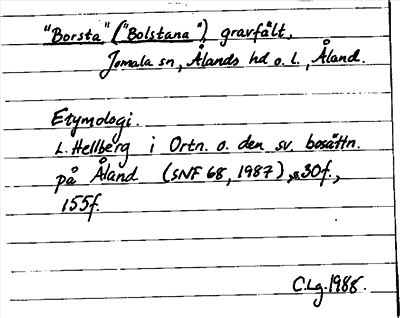 "Borsta" ("Bolstana"), gravfält,
Jomala sn, Ålands hd o. l., Åland.
Etymologi.
L. Hellberg i Ortn. o. den sv. bosättn.
på Åland (SNF 68, 1987), s. 30f.,
155f.
C.Lg. 1988.